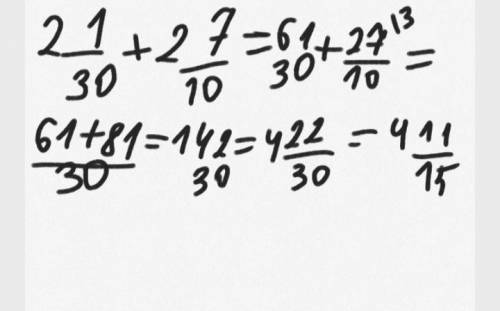 2 1/30 + 2 7/10 = 61/30 + 27/10 \3 =
61+81/30 = 142/30 = 4 22/30 = 4 11/15